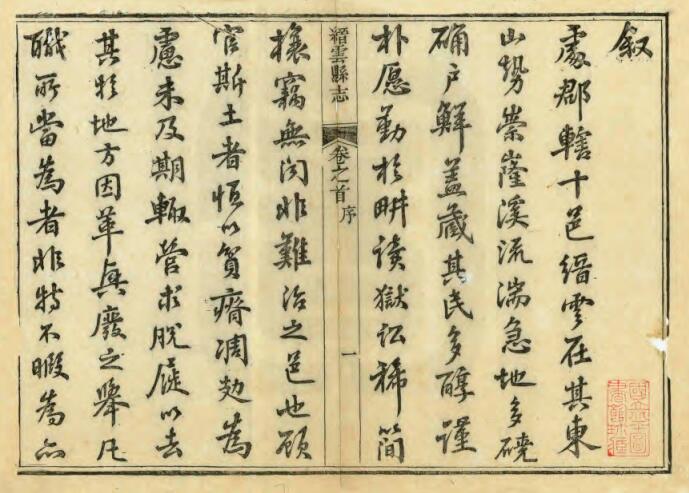 叙
處郡轄十邑縉雲在其東
山勢崇窿溪流湍急地多磽
确户鮮蓋藏其民多醇謹
朴愿勤於畊读獄訟稀簡
縉雲縣志
卷之首
序
一
攘竊無闻非難治之邑也顧
官斯土者恒以貧瘠凋敝為
慮未及期輙營求脱屣以去
其於地方因革興廢之舉凡
職所當為者非特不暇為亦